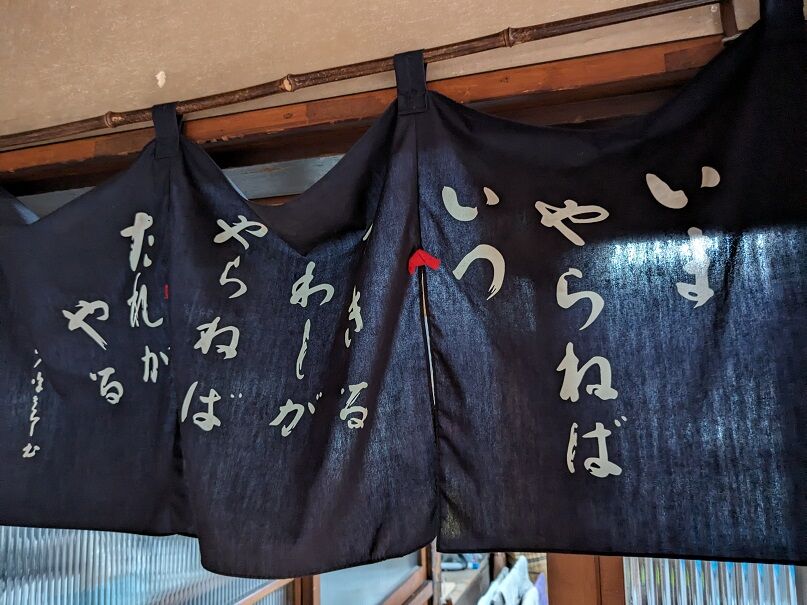 いま
やらねば
いつ
きる
わしが
やらねば
たれが
やる